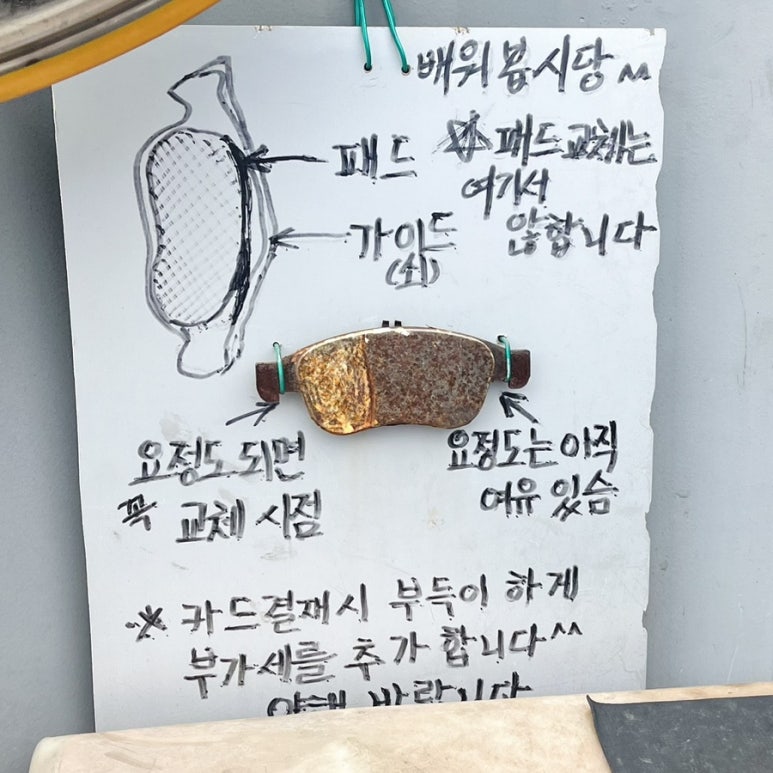 배워 봅시당 ^^
패드
☆ 패드 교체는
여기서
않합니다
가이드
(쇠)
요정도 되면
꼭 교체 시점
요정도는 아직
여유 있슴
※ 카드결재시 부득이 하게
부가세를 추가 합니다^^
양해 바랍니다